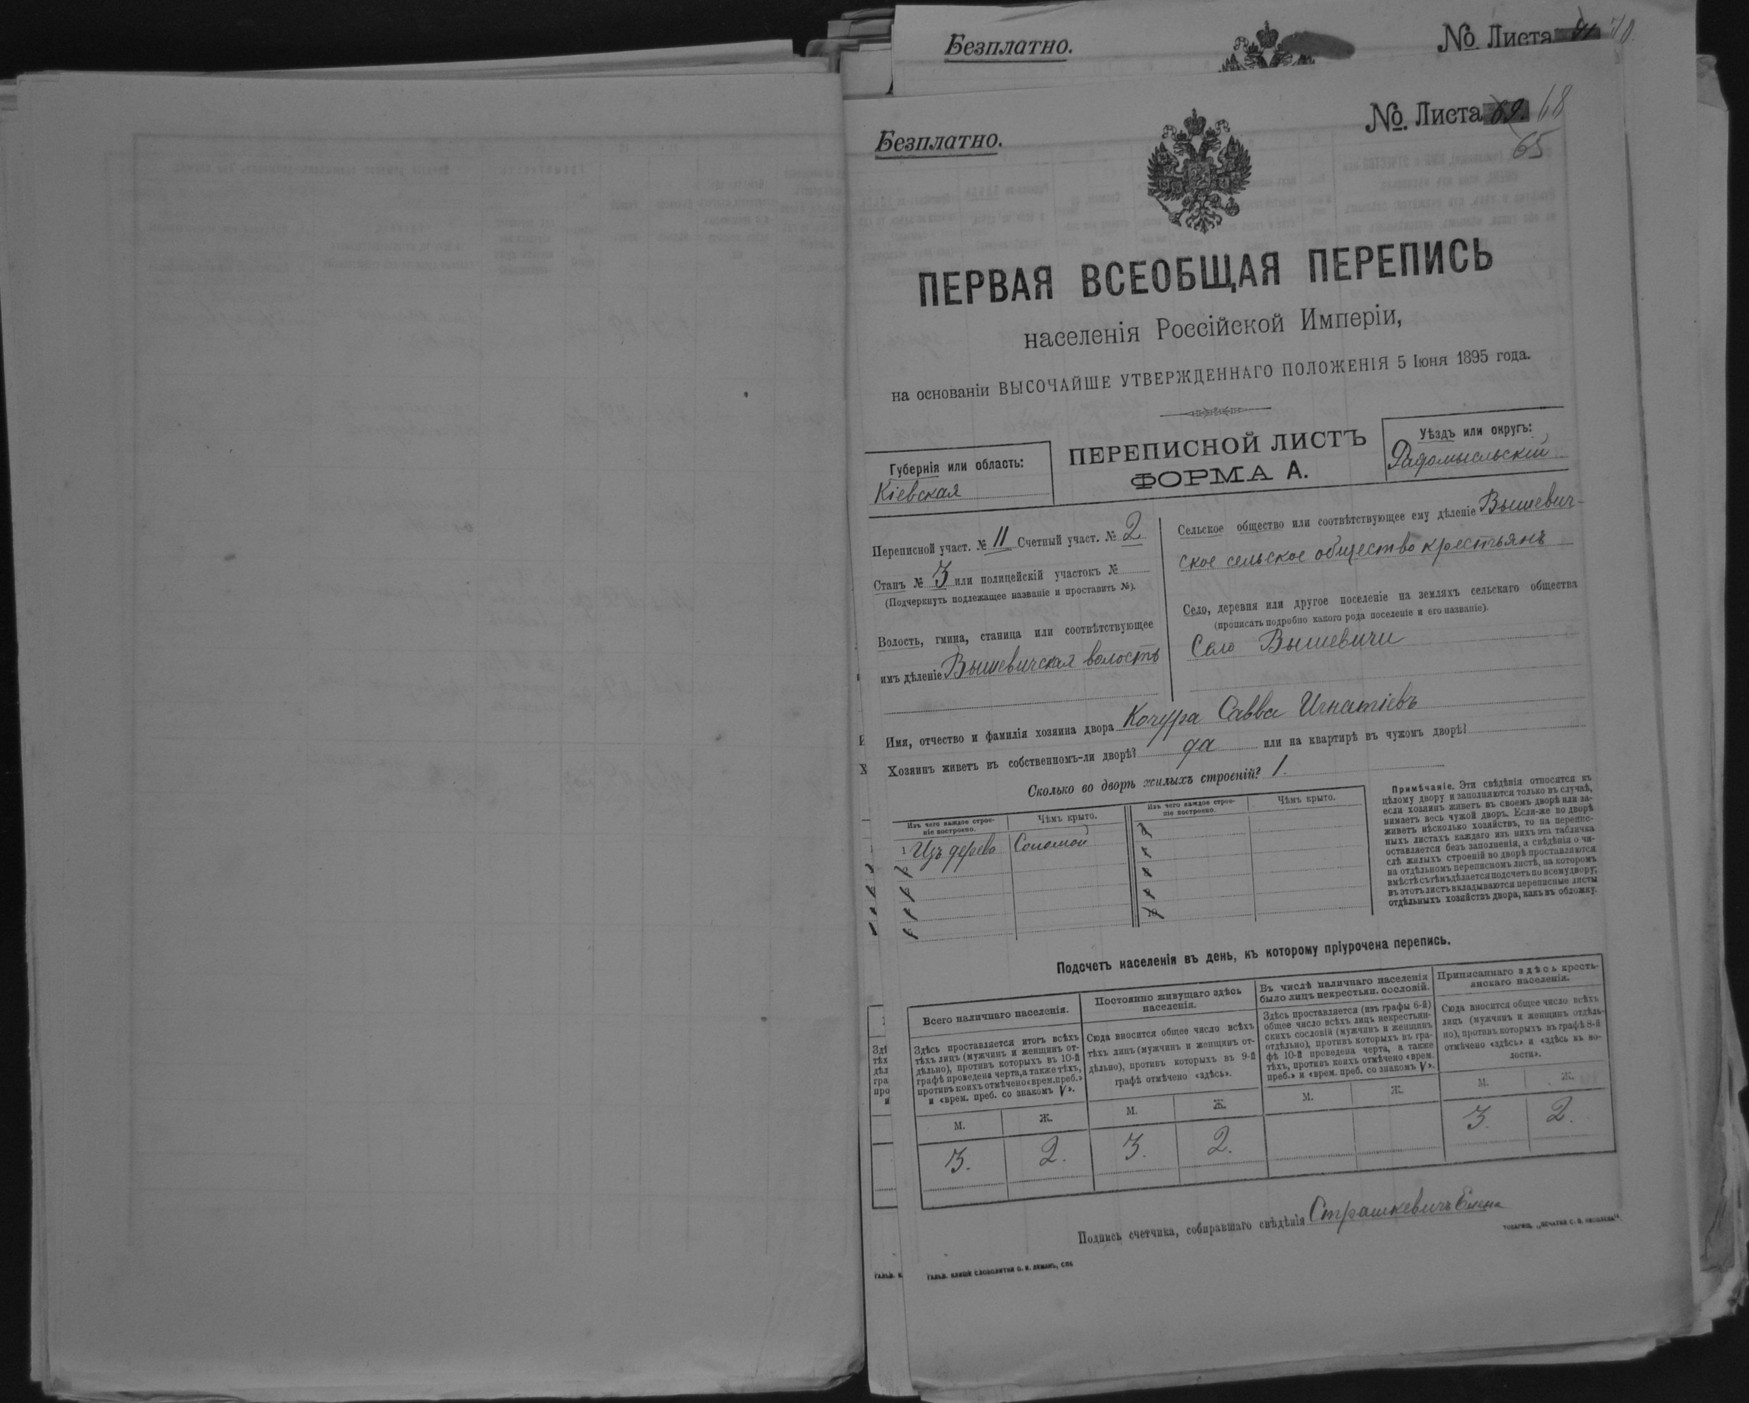 Безплатно.
№ Листа
Безплатно.
№ Листа 69. 68
65
ПЕРВАЯ ВСЕОБЩАЯ ПЕРЕПИСЬ
населенія Россійской Имперіи,
на основаніи ВЫСОЧАЙШЕ УТВЕРЖДЕННАГО ПОЛОЖЕНІЯ 5 Іюня 1895 года.
Губернія или область:
Кіевская
ПЕРЕПИСНОЙ ЛИСТЪ
ФОРМА А.
Уѣздъ или округъ:
Радомысльскій
Переписной участ. № 11 Счетный участ. № 2
Станъ № 3 или полицейскій участокъ №
(Подчеркнуть подлежащее названіе и проставить №).
Волость, гмина, станица или соотвѣтствующее
имъ дѣленіе Вышевичская волость
Сельское общество или соотвѣтствующее ему дѣленіе Вышевич-
ское сельское общество крестьянъ
Село, деревня или другое поселеніе на земляхъ сельскаго общества
(прописать подробно какого рода поселеніе и его названіе).
Село Вышевичи
Имя, отчество и фамилія хозяина двора Кочура Савва Игнатіевъ
Хозяинъ живетъ въ собственномъ-ли дворѣ? да или на квартирѣ въ чужомъ дворѣ?
Сколько во дворѣ жилыхъ строеній? 1.
Изъ чего каждое строе-
ніе построено.
Чѣмъ крыто.
1 Изъ дерева Соломой
Изъ чего каждое строе-
ніе построено.
Чѣмъ крыто.
Примѣчаніе. Эти свѣдѣнія относятся къ
цѣлому двору и заполняются только въ случаѣ,
если хозяинъ живетъ въ своемъ дворѣ или за-
нимаетъ весь чужой дворъ. Если-же во дворѣ
живетъ нѣсколько хозяйствъ, то на перепис-
ныхъ листахъ каждаго изъ нихъ эта табличка
оставляется безъ заполненія, а свѣдѣнія о чи-
слѣ жилыхъ строеній во дворѣ проставляются
на отдѣльномъ переписномъ листѣ, на которомъ
вмѣстѣ съ тѣмъ дѣлается подсчетъ по всему двору;
въ этотъ листъ вкладываются переписные листы
отдѣльныхъ хозяйствъ двора, какъ въ обложку.
Подсчетъ населенія въ день, къ которому пріурочена перепись.
Всего наличнаго населенія.
Здѣсь проставляется итогъ всѣхъ
тѣхъ лицъ (мужчинъ и женщинъ от-
дѣльно), противъ которыхъ въ 10-й
графѣ проведена черта, а также тѣхъ,
противъ коихъ отмѣчено «врем. преб.»
и «врем. преб. со знакомъ V».
М. Ж.
3. 2.
Постоянно живущаго здѣсь
населенія.
Сюда вносится общее число всѣхъ
тѣхъ лицъ (мужчинъ и женщинъ от-
дѣльно), противъ которыхъ въ 9-й
графѣ отмѣчено «здѣсь».
М. Ж.
3. 2.
Въ числѣ наличнаго населенія
было лицъ некрестьян. сословій.
Здѣсь проставляется (изъ графы 6-й)
общее число всѣхъ лицъ некрестьян-
скихъ сословій (мужчинъ и женщинъ
отдѣльно), противъ которыхъ въ гра-
фѣ 10-й проведена черта, а также
тѣхъ, противъ коихъ отмѣчено «врем.
преб.» и «врем. преб. со знакомъ V».
М. Ж.
Приписаннаго здѣсь кресть-
янскаго населенія.
Сюда вносится общее число всѣхъ
лицъ (мужчинъ и женщинъ отдѣль-
но), противъ которыхъ въ графѣ 8-й
отмѣчено «здѣсь» и «здѣсь къ во-
лости».
М. Ж.
3. 2.
Подпись счетчика, собиравшаго свѣдѣнія Страшкевичъ Елена